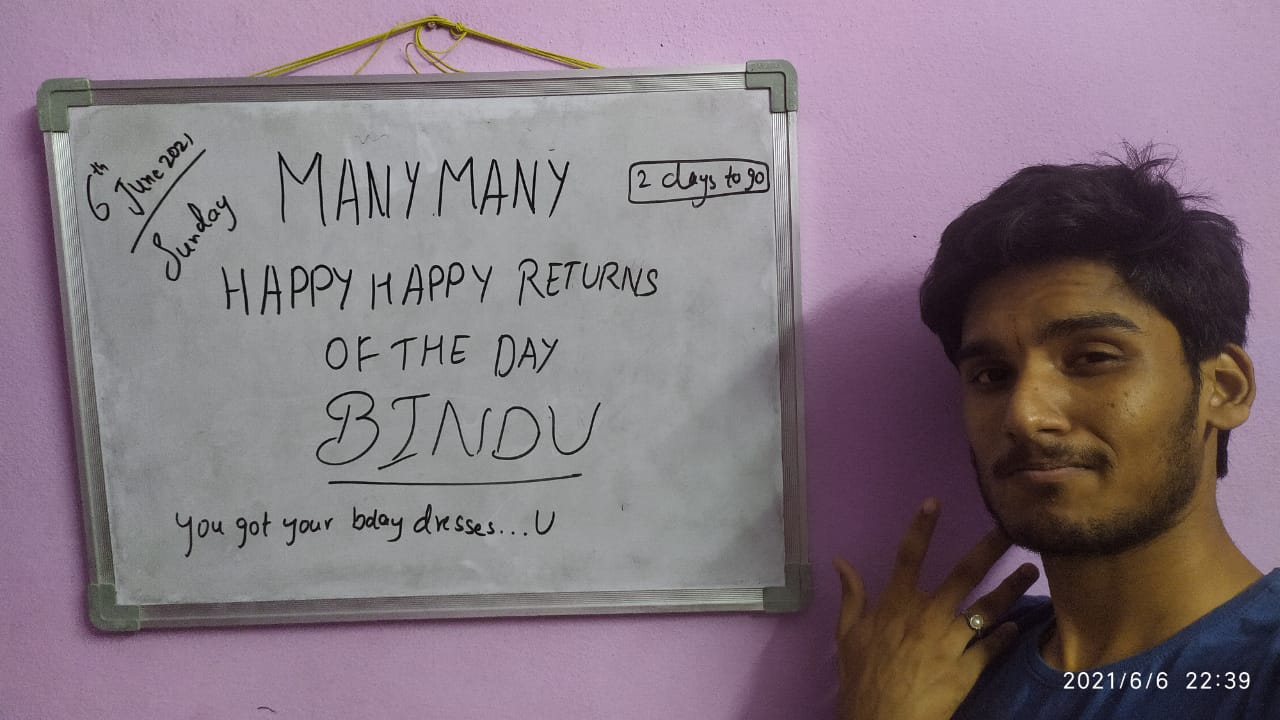 6th June 2021
Sunday
MANY MANY
2 days to go
HAPPY HAPPY RETURNS
OF THE DAY
BINDU
you got your bday dresses...U
2021/6/6 22:39